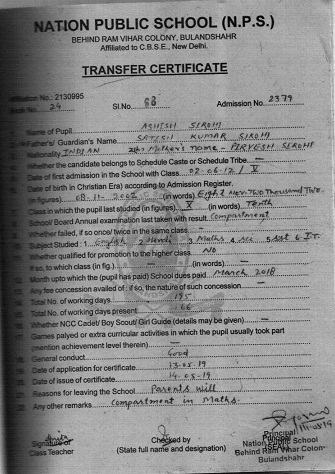 NATION PUBLIC SCHOOL (N.P.S.)
BEHIND RAM VIHAR COLONY, BULANDSHAHR
Affiliated to C.B.S.E., New Delhi.
TRANSFER CERTIFICATE
Affiliation No.: 2130995
Book No. 24 Sl.No. 68 Admission No. 2379
Name of Pupil ASHISH SEROHI
Father's/ Guardian's Name SATISH KUMAR SEROHI
Nationality INDIAN Mother's name - SEROHI
Whether the candidate belongs to Schedule Caste or Schedule Tribe —
Date of first admission in the School with Class 02-06-17 / V
Date of birth in Christian Era) according to Admission Register.
(in figures) 08-11-2002 (in words) Eight Nov. Two Thousand Two
Class in which the pupil last studied (in figures) X (in words) Tenth
School/ Board Annual examination last taken with result. Compartment
Whether failed, if so once/ twice in the same class —
Subject Studied : 1. English 2. Hindi 3. Maths 4. 5. SSt 6. I.T.
Whether qualified for promotion to the higher class No No
If so, to which class (in fig.) — (in words) —
Month upto which the (pupil has paid) School dues paid March 2018
Any fee concession availed of : if so, the nature of such concession —
Total No. of working days 195
Total No. of working days present 166
Whether NCC Cadet/ Boy Scout/ Girl Guide (details may be given) —
Games palyed or extra curricular activities in which the pupil usually took part
mention achievement level therein) —
General conduct Good
Date of application for certificate 13-05-19
Date of issue of certificate 14-05-19
Reasons for leaving the School Parents will
Any other remarks Compartment in Maths.
Signature of
Class Teacher
Checked by
(State full name and designation)
Principal
(SEAL)
Nation Public School
Behind Ram Vihar Colony
Bulandshahr